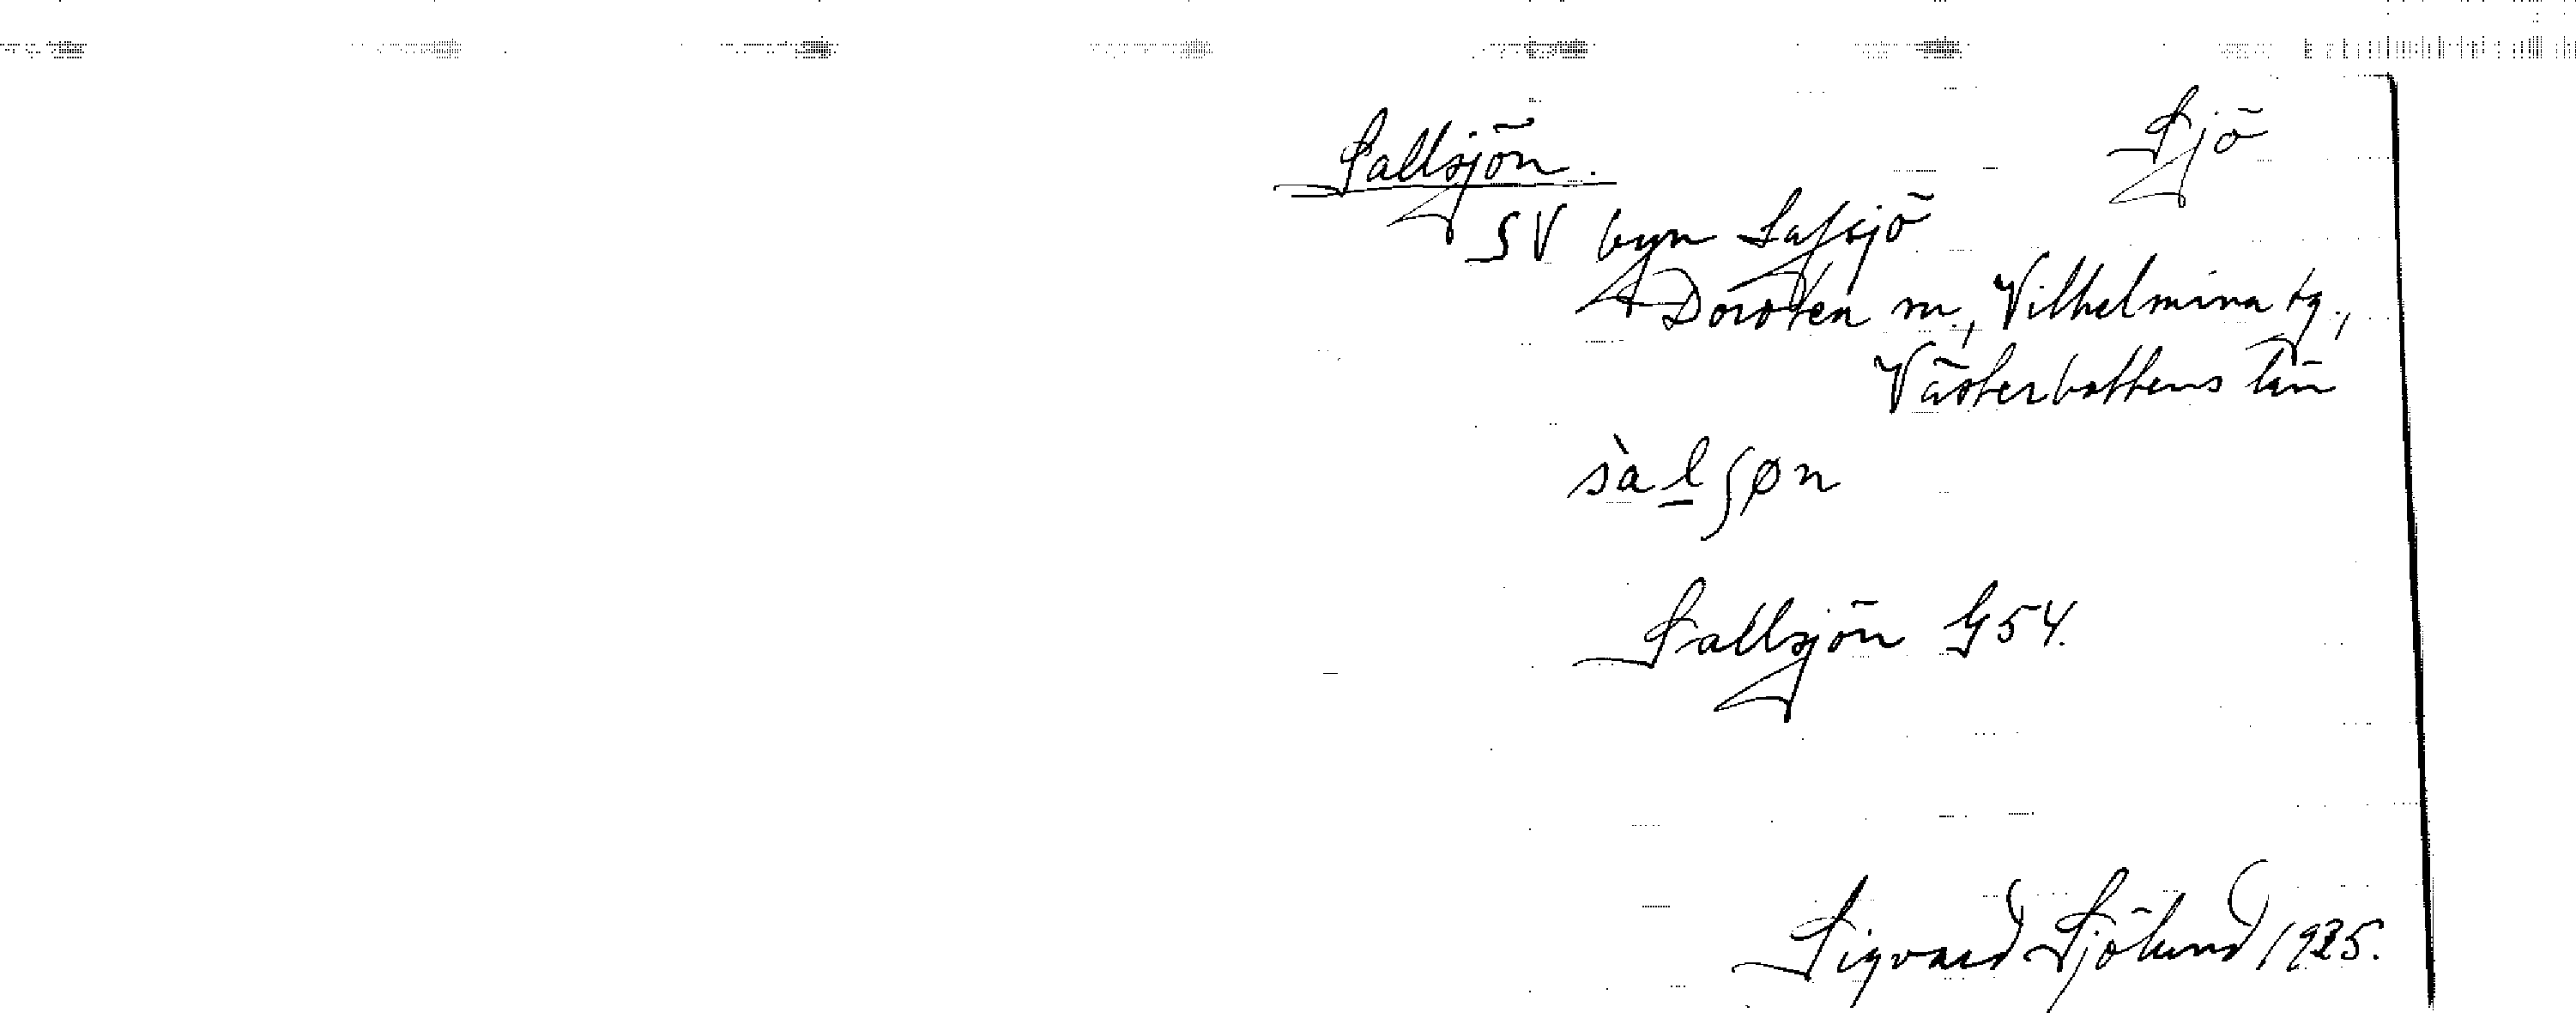 Sallsjön. Sjö
SV byn Lafsjö
Dorotea sn., Vilhelmina tg.,
Västerbottens län
sàl̲ʃøn
Sallsjön G54.
Sigvard Sjölund 1935.